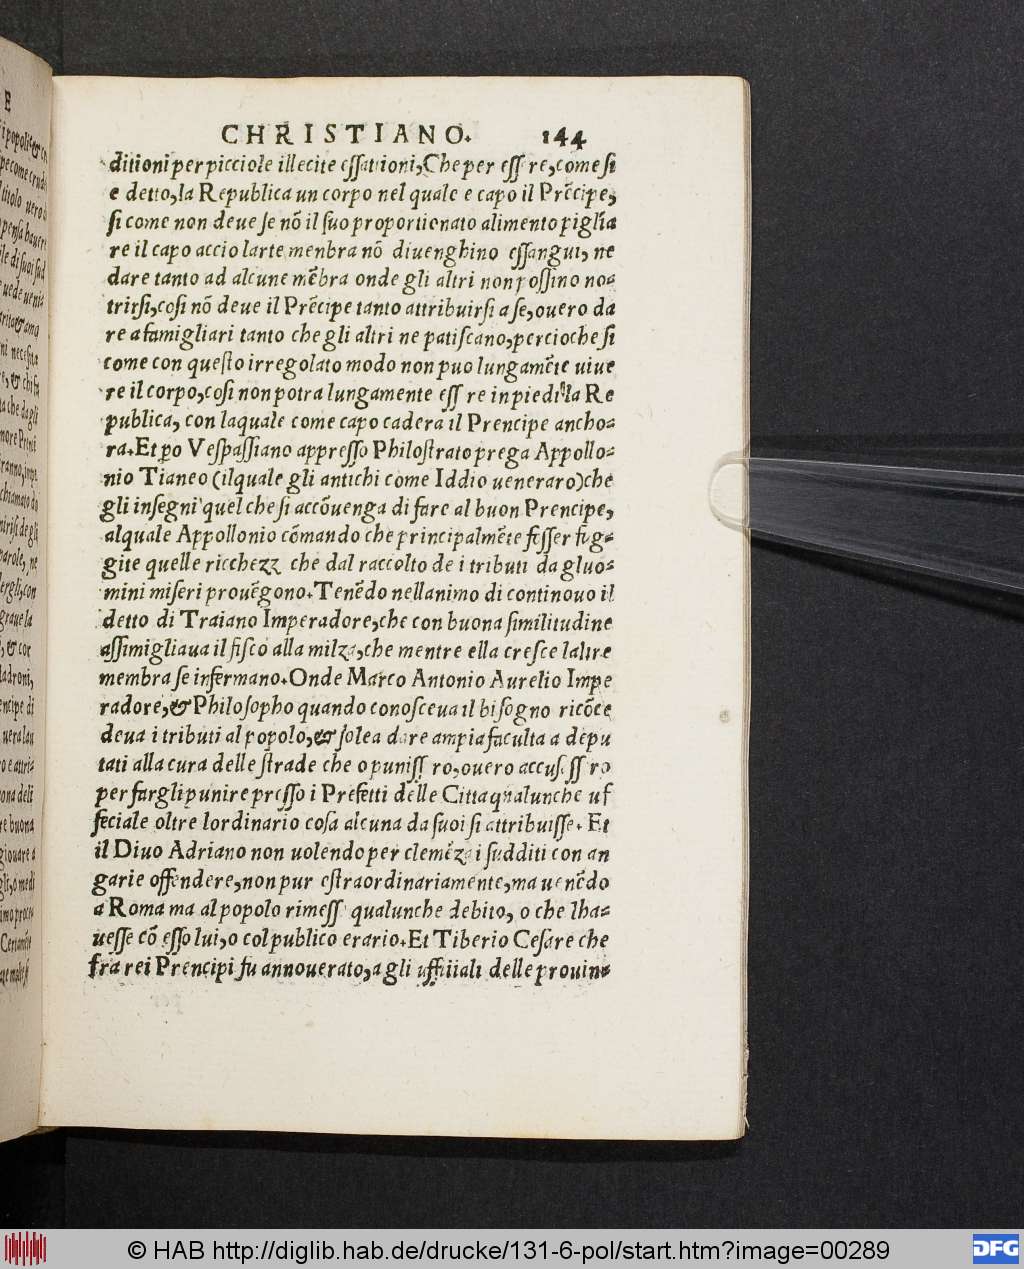 CHRISTIANO. 144
ditioni per picciole illecite essationi, Che per essere, come si
e detto, la Republica un corpo nel quale e capo il Prẽcipe,
si come non deue se nõ il suo proportionato alimento piglia
re il capo accio larte menbra nõ diuenghino essangui, ne
dare tanto ad alcune mẽbra onde gli altri non possino no-
trirsi, cosi nõ deue il Prẽcipe tanto attribuirsi a se, ouero da
re a famigliari tanto che gli altri ne patiscano, percioche si
come con questo irregolato modo non puo lungamẽte uiue
re il corpo, cosi non potra lungamente ess re in piedi la Re
publica, con laquale come capo cadera il Prencipe ancho-
ra. Et ꝑo Vespassiano appresso Philostrato prega Appollo-
nio Tianeo (ilquale gli antichi come Iddio ueneraro) che
gli insegni quel che si accõuenga di fare al buon Prencipe,
alquale Appollonio cõmando che principalmẽte fosser fug-
gite quelle ricchezz che dal raccolto de i tributi da gluo-
mini miseri prouẽgono. Tenẽdo nellanimo di continouo il
detto di Traiano Imperadore, che con buona similitudine
assimigliaua il fisco alla milza, che mentre ella cresce laltre
membra se infermano. Onde Marco Antonio Aurelio Impe
radore, & Philosopho quando conosceua il bisogno ricõce
deua i tributi al popolo, & solea dare ampia faculta a depu
tati alla cura delle strade che o puniss ro, ouero accusass ro
per fargli punire presso i Prefetti delle Citta qualunche uf
feciale oltre lordinario cosa alcuna da suoi si attribuisse. Et
il Diuo Adriano non uolendo per clemẽza i sudditi con an
garie offendere, non pur estraordinariamente, ma uenẽdo
a Roma ma al popolo rimess qualunche debito, o che lha-
uesse cõ esso lui, o col publico erario. Et Tiberio Cesare che
fra rei Prencipi fu annouerato, a gli uffitiali delle prouin-
© HAB http://diglib.hab.de/drucke/131-6-pol/start.htm?image=00289
DFG